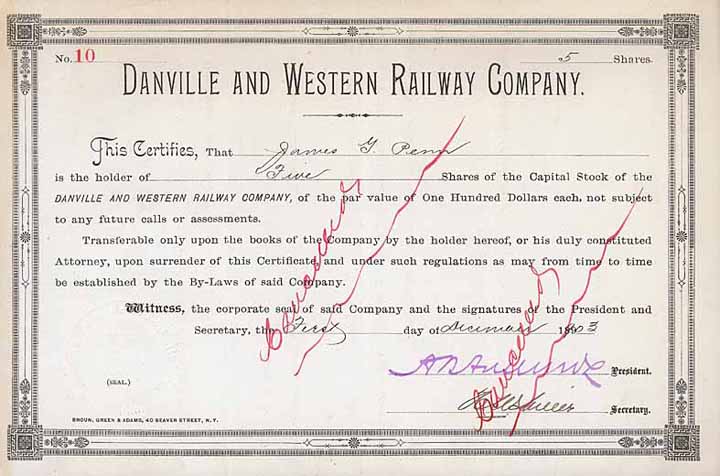 No. 10 5 Shares.
DANVILLE AND WESTERN RAILWAY COMPANY.
This Certifies, That James G. Penn
is the holder of Five Shares of the Capital Stock of the
DANVILLE AND WESTERN RAILWAY COMPANY, of the par value of One Hundred Dollars each, not subject
to any future calls or assessments.
Transferable only upon the books of the Company by the holder hereof, or his duly constituted
Attorney, upon surrender of this Certificate, and under such regulations as may from time to time
be established by the By-Laws of said Company.
Witness, the corporate seal of said Company and the signatures of the President and
Secretary, the First day of December 3
President.
(SEAL.)
Secretary.
BROUN, GREEN & ADAMS, 40 BEAVER STREET, N.Y.
Cancelled
Cancelled